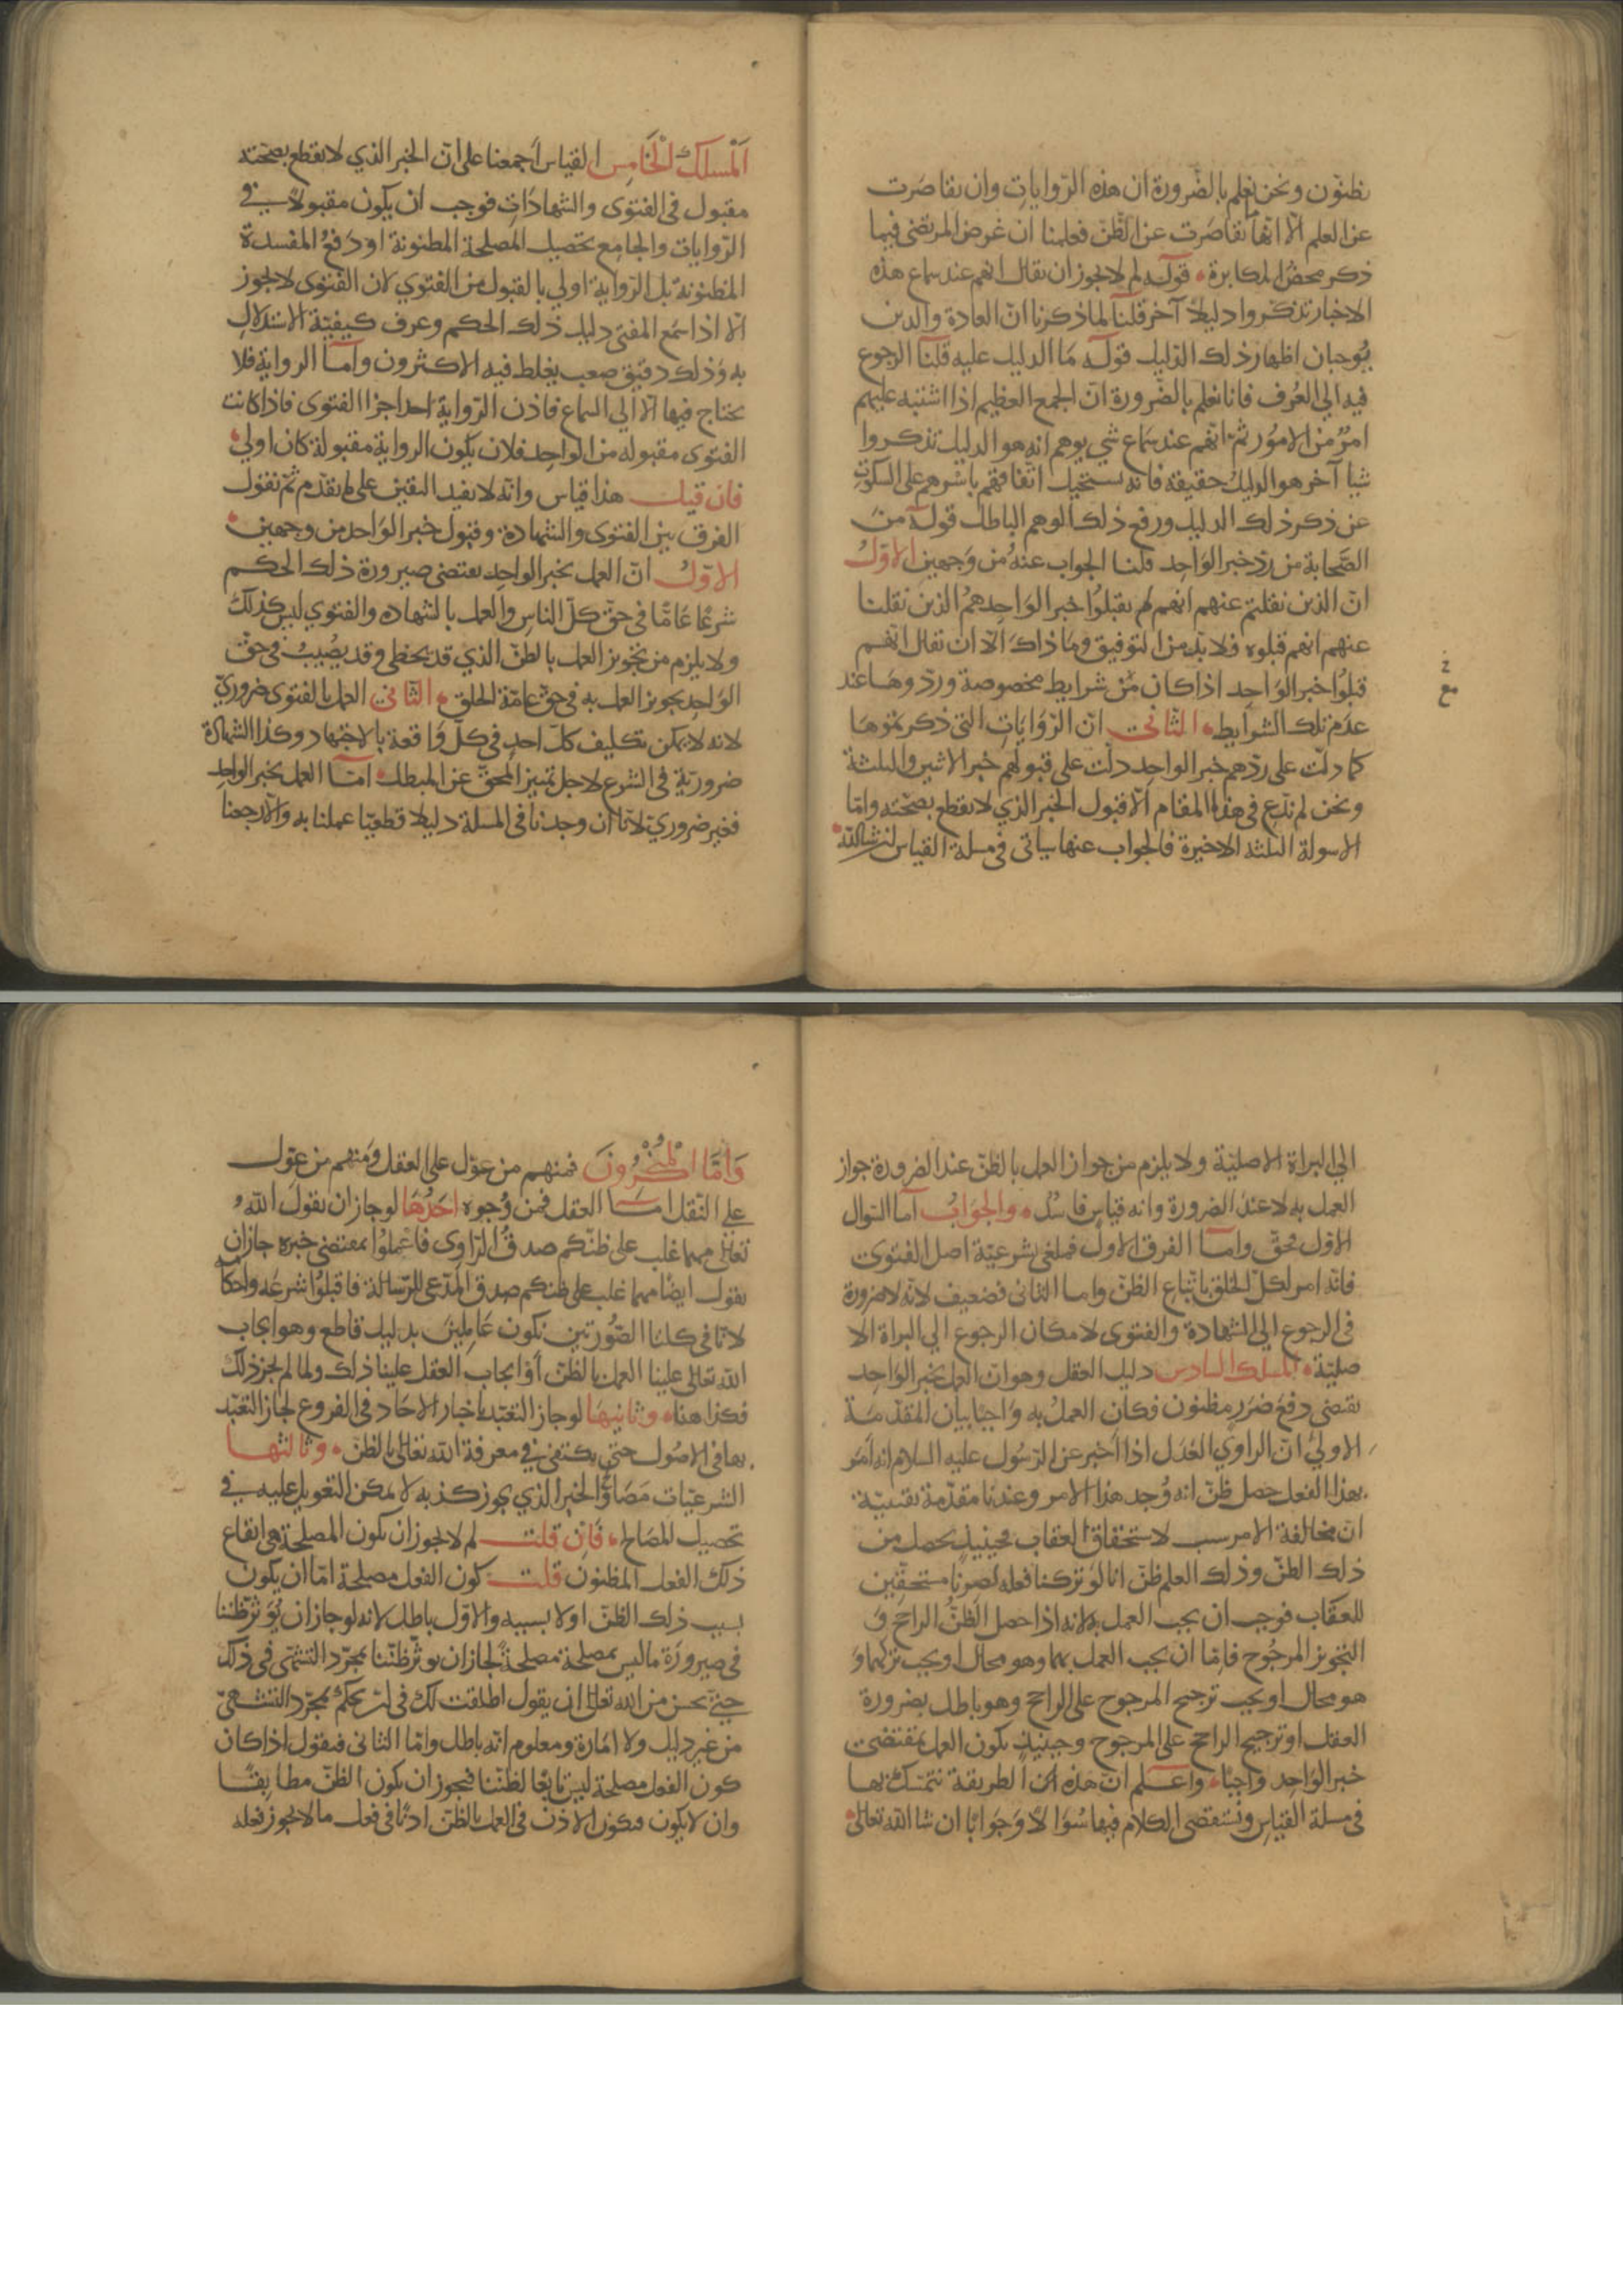 نظنون ونحن نعلم بالضرورة ان هذه الروايات وان تقاصرت
عن العلم الا انها ما تقاصرت عن الظن فعلمنا ان غرض المرتضى فيما
ذكر محض المكابرة قوله لم لا يجوز ان يقال انهم عند سماع هذه
الاخبار تذكروا دليلا آخر قلنا لما ذكرنا ان العادة والدين
يوجبان اظهار ذلك الدليل قوله ما الدليل عليه قلنا الرجوع
فيه الي العرف فانا نعلم بالضرورة ان الجمع العظيم اذا اشتبه عليهم
امر من الامور ثم انهم عند سماع شي يوهم انه هو الدليل تذكروا
شيا آخر هو الدليل حقيقة فانه يستحيل اتفاقهم باسرهم على السكوت
عن ذكر ذلك الدليل ورفع ذلك الوهم الباطل قوله من
الصحابة من رد خبر الواحد قلنا الجواب عنه من وجهين الاول
ان الذين نقلتم عنهم انهم لم يقبلوا خبر الواحد هم الذين نقلنا
عنهم انهم قبلوه فلا بد من التوفيق وما ذاك الا ان يقال انهم
قبلوا خبر الواحد اذا كان مع شرايط مخصوصة وردوها عند
عدم تلك الشرايط الثاني ان الروايات التي ذكرتموها
كما دلت على ردهم خبر الواحد دلت على قبولهم خبر الاثنين والثلثة
ونحن لم ندع في هذا المقام الا قبول الخبر الذي لا يقطع بصحته واما
الاسولة الثلثة الاخيرة فالجواب عنها سياتي في مسلة القياس ان شا الله
المسلك الخامس القياس اجمعنا على ان الخبر الذي لا يقطع بصحته
مقبول في الفتوى والشهادات فوجب ان يكون مقبولا في
الروايات والجامع تحصيل المصلحة المظنونة او دفع المفسدة
المظنونة بل الرواية اولي بالقبول من الفتوي لان الفتوى لا تجوز
الا اذا سمع المفتي دليل ذلك الحكم وعرف كيفية الاستدلال
به وذلك دقيق صعب يغلط فيه الاكثرون واما الرواية فلا
يحتاج فيها الا الي السماع فاذن الرواية احد اجزا الفتوى فاذا كانت
الفتوى مقبوله من الواحد فلان يكون الرواية مقبولة كان اولي
فان قيل هذا قياس وانه لا يفيد اليقين على ما تقدم ثم نقول
الفرق بين الفتوى والشهادة وقبول خبر الواحد من وجهين
الاول ان العمل بخبر الواحد يقتضي صيرورة ذلك الحكم
شرعا عاما في حق كل الناس والعمل بالشهاده والفتوي ليس كذلك
ولا يلزم من تجويز العمل بالظن الذي قد يخطي وقد يصيب في حق
الواحد تجويز العمل به في حق عامة الخلق الثاني العمل بالفتوى ضروري
لانه لا يمكن تكليف كل احد في كل واقعة بالاجتهاد وكذا الشهادة
ضرورية في الشرع لاجل تمييز المحق عن المبطل اما العمل بخبر الواحد
فغير ضروري لانا ان وجدنا في المسلة دليلا قطعيا عملنا به والا رجعنا
الي البراة الاصلية ولا يلزم من جواز العمل بالظن عند الضرورة جواز
العمل به لا عند الضرورة وانه قياس فاسد والجواب اما السوال
الاول فحق واما الفرق الاول فملغى بشرعية اصل الفتوى
فانه امر لكل الخلق باتباع الظن واما الثاني فضعيف لانه لا ضرورة
في الرجوع الي الشهادة والفتوى لامكان الرجوع الي البراة الا
صلية المسلك السادس دليل العقل وهو ان العمل بخبر الواحد
يقتضي دفع ضرر مظنون فكان العمل به واجبا بيان المقدمة
الاولي ان الراوي العدل اذا اخبر عن الرسول عليه السلام انه امر
بهذا الفعل حصل ظن انه وجد هذا الامر وعندنا مقدمة يقينية
ان مخالفة الامر سبب لاستحقاق العقاب فحينيذ يحصل من
ذلك الظن وذلك العلم ظن انا لو تركنا فعله لصرنا مستحقين
للعقاب فوجب ان يجب العمل به لانه اذا حصل الظن الراجح و
التجويز المرجوح فاما ان يجب العمل بهما وهو محال او يجب تركهما و
هو محال او يجب ترجيح المرجوح على الراجح وهو باطل بضرورة
العقل او ترجيح الراجح على المرجوح وحينيذ يكون العمل بمقتضى
خبر الواحد واجبا واعلم ان هذه الطريقة نتمسك بها
في مسلة القياس ونستقصى الكلام فيها سوالا وجوابا ان شا الله تعالى
واما المنكرون فمنهم من عول على العقل ومنهم من عول
على النقل اما العقل فمن وجوه احدها لو جاز ان يقول الله
تعالى مهما غلب على ظنكم صدق الراوى فاعملوا بمقتضى خبره جاز ان
يقول ايضا مهما غلب على ظنكم صدق المدعي للرسالة فاقبلوا شرعه واحكامه
لانا في كلتا الصورتين نكون عاملين بدليل قاطع وهو ايجاب
الله تعالى علينا العمل بالظن او ايجاب العقل علينا ذلك ولما لم يجز ذلك
فكذا هنا وثانيها لو جاز التعبد باخبار الاحاد في الفروع لجاز التعبد
بها في الاصول حتى يكتفى في معرفة الله تعالى بالظن وثالثها
الشرعيات مصالح والخبر الذي يجوز كذبه لا يمكن التعويل عليه في
تحصيل المصالح فان قلت لم لا يجوز ان يكون المصلحة هي ايقاع
ذلك الفعل المظنون قلت كون الفعل مصلحة اما ان يكون
بسبب ذلك الظن او لا بسببه والاول باطل لانه لو جاز ان يوثر ظننا
في صيرورة ما ليس بمصلحة مصلحة لجاز ان يوثر ظننا بمجرد التشهي في ذلك
حتى يحسن من الله تعالى ان يقول اطلقت لك في ان تحكم بمجرد التشهي
من غير دليل ولا امارة ومعلوم انه باطل واما الثاني فنقول اذا كان
كون الفعل مصلحة ليس تابعا لظننا فيجوز ان يكون الظن مطابقا
وان لا يكون فيكون الاذن في العمل بالظن اذنا في فعل ما لا يجوز فعله